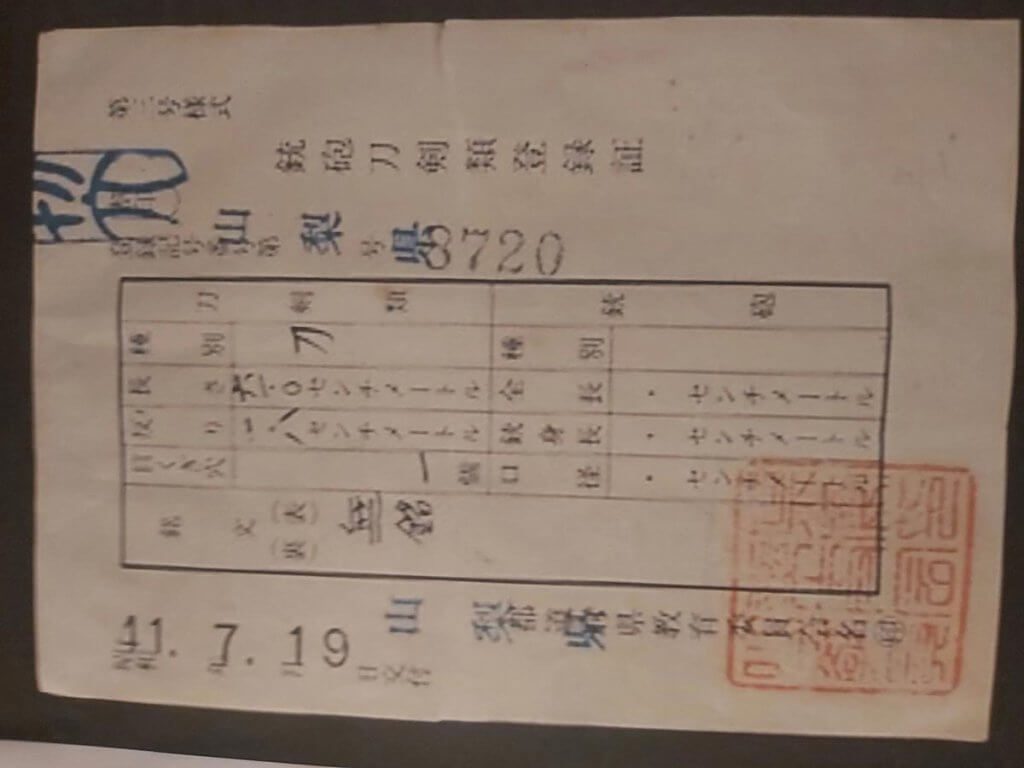 第三号様式
銃砲刀剣類登録証
登録記号番号第 山梨県 号 8720
刀剣類 銃砲
種別 刀 種別
長さ センチメートル 全長 ・ センチメートル
反り 一・八 センチメートル 銃身長 ・ センチメートル
目くぎ穴 一 個 口径 ・ センチメートル
銘文 (表) 無銘
(裏)
昭和 41. 7. 19 日交付 山梨県 都道府県教育委員会名 印